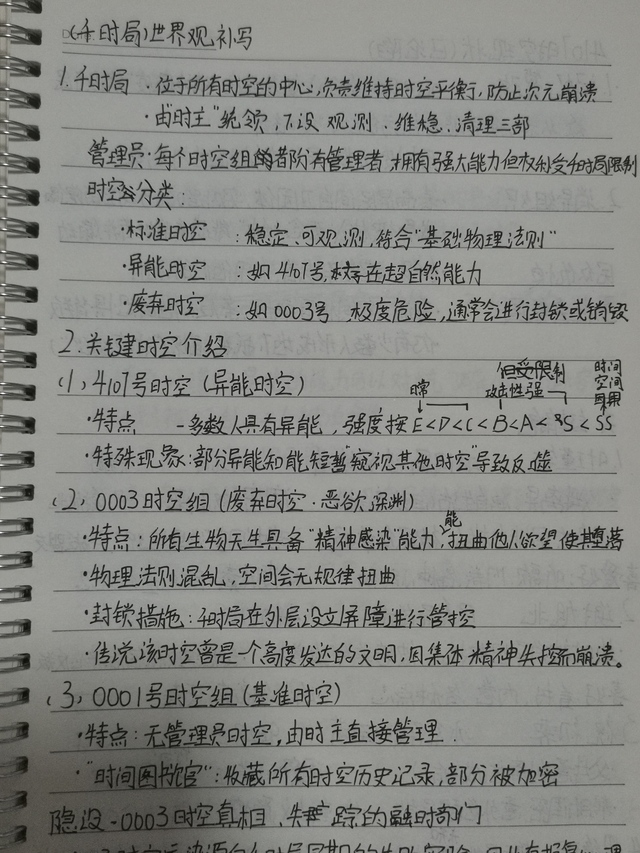 (千时局)世界观补写
1.千时局 ·位于所有时空的中心,负责维持时空平衡,防止次元崩溃
·由"时主"统领,下设 观测、维稳、清理三部
管理员·每个时空组的都附有管理者,拥有强大能力但权利受千时局限制
时空分类:
·标准时空 :稳定、可观测,符合"基础物理法则"
·异能时空 :如4107号,存在超自然能力
·废弃时空 :如0003号 极度危险,通常会进行封锁或销毁
2.关键时空介绍
但受限制 时间
(1)4107号时空(异能时空) 日常 攻击性强 空间
·特点 -多数人具有异能,强度按E<D<C<B<A<S<SS
·特殊现象:部分异能知能短暂"窥视其他时空"导致反噬
(2)0003时空组(废弃时空·恶欲深渊)
·特点:所有生物天生具备"精神感染"能力,能扭曲他人欲望使其堕落
·物理法则混乱,空间会无规律扭曲
·封锁措施:千时局在外层设立屏障进行管控
·传说该时空曾是一个高度发达的文明,因集体精神失控而崩溃。
(3)0001号时空组(基准时空)
·特点:无管理员时空,由时主直接管理.
·"时间图书馆":收藏所有时空历史记录,部分被加密
隐设-0003时空真相,失踪的融时部门